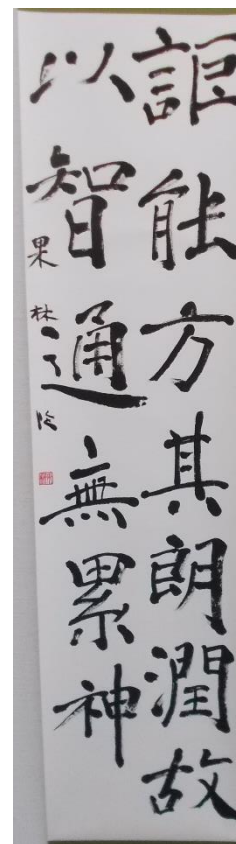 詎能方其朗潤故
以智通無累神
果林